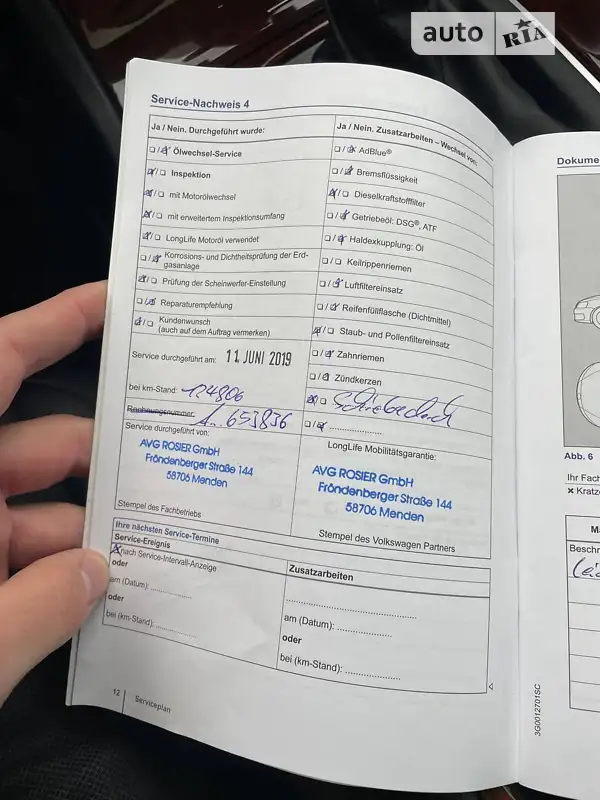 auto RIA
Service-Nachweis 4
Ja / Nein. Durchgeführt wurde:
Ölwechsel-Service
Inspektion
mit Motorölwechsel
mit erweitertem Inspektionsumfang
LongLife Motoröl verwendet
Korrosions- und Dichtheitsprüfung der Erd-
gasanlage
Prüfung der Scheinwerfer-Einstellung
Reparaturempfehlung
Kundenwunsch
(auch auf dem Auftrag vermerken)
Service durchgeführt am: 11 JUNI 2019
bei km-Stand: 124806
Rechnungsnummer: 653836
Service durchgeführt von:
AVG ROSIER GmbH
Fröndenberger Straße 144
58706 Menden
Stempel des Fachbetriebs
Ja / Nein. Zusatzarbeiten – Wechsel von:
AdBlue®
Bremsflüssigkeit
Dieselkraftstofffilter
Getriebeöl: DSG®, ATF
Haldexkupplung: Öl
Keilrippenriemen
Luftfiltereinsatz
Reifenfüllflasche (Dichtmittel)
Staub- und Pollenfiltereinsatz
Zahnriemen
Zündkerzen
Schiebedach
....................
LongLife Mobilitätsgarantie:
AVG ROSIER GmbH
Fröndenberger Straße 144
58706 Menden
Stempel des Volkswagen Partners
Ihre nächsten Service-Termine
Service-Ereignis
nach Service-Intervall-Anzeige
oder
am (Datum): ...............
oder
bei (km-Stand): ...............
Zusatzarbeiten
am (Datum): ....................
oder
bei (km-Stand): ....................
12 Serviceplan
Dokume
Abb. 6
Ihr Fach
× Kratze
Beschr
3G0012701SC